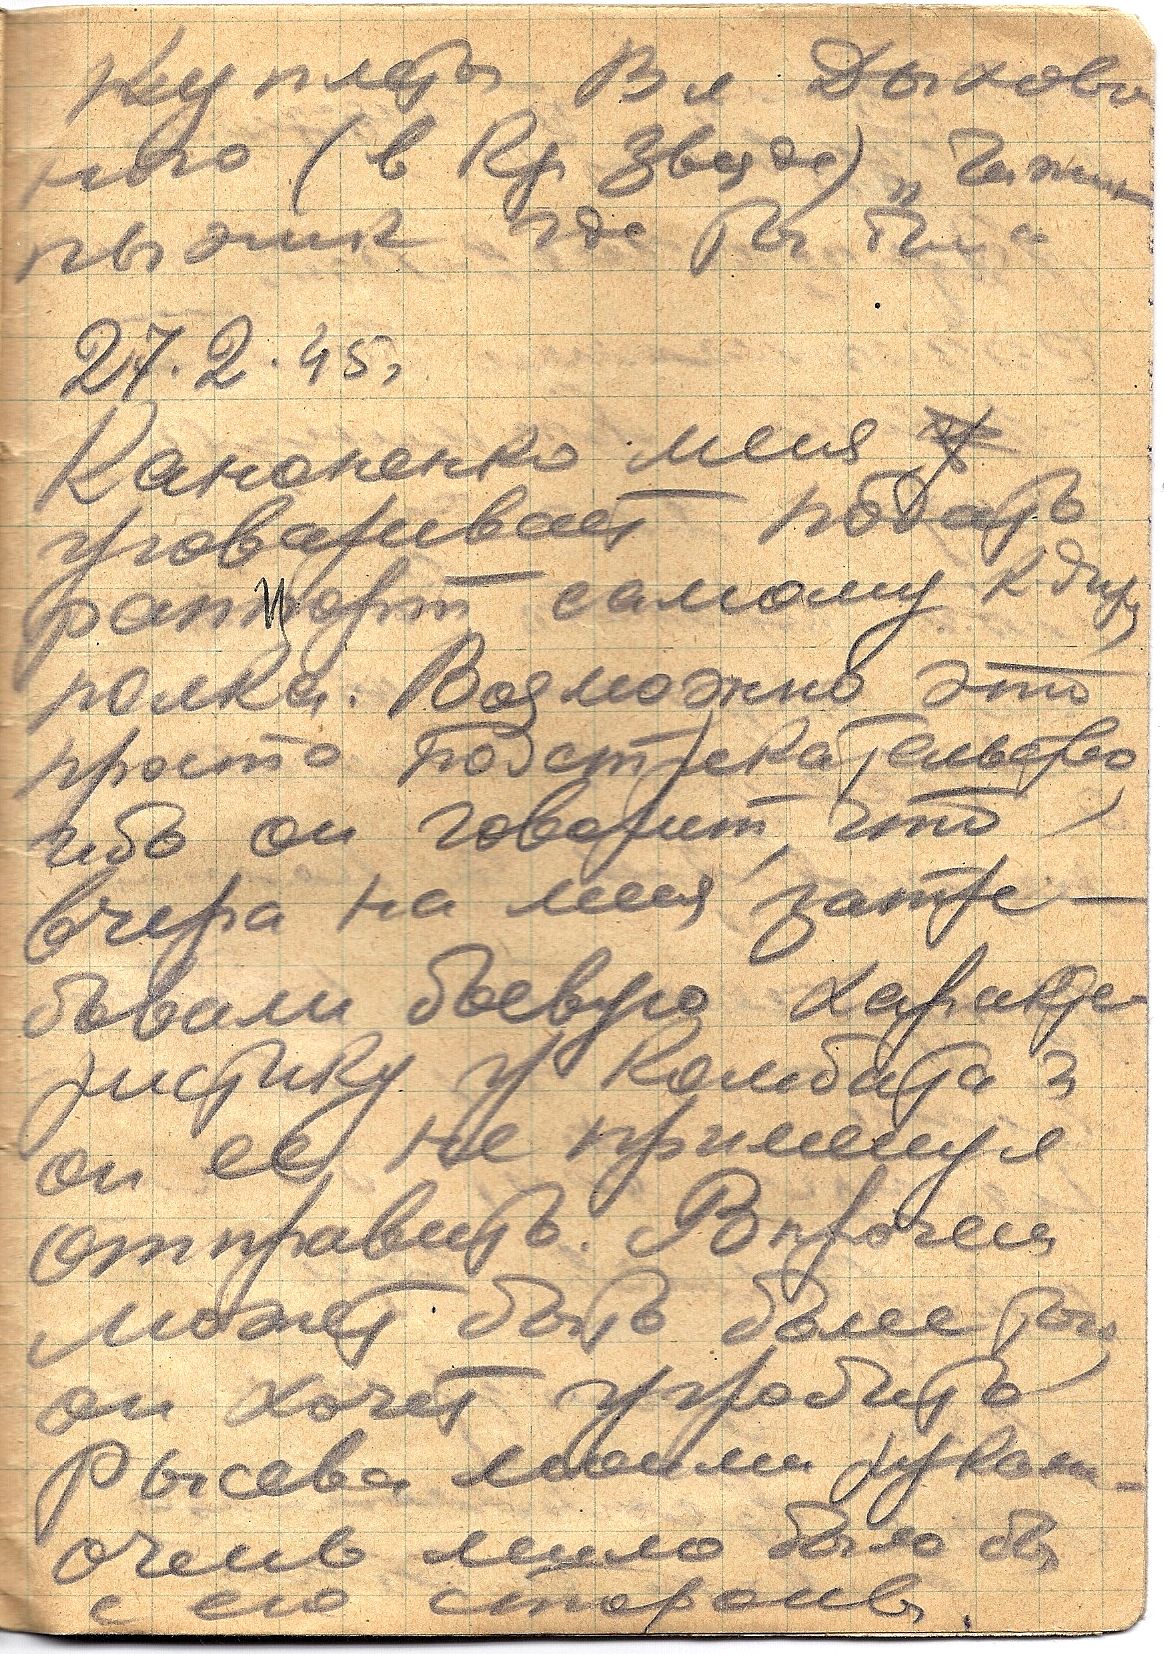 Куплеты Вл Дыхови
ного (в Кр Звезде) „Чижик
пыжик где ты был"
27.2.45,
Каноненко меня
уговаривает подать
рапорт самому к-диру
полка. Возможно это
просто подстрекательство
ибо он говорит, что
вчера на меня затре-
бовали боевую характе-
ристику у комбата 3
он ее не приминул
отправить. Впрочем
может быть более того
он хочет угробить
Рысева моими руками-
очень мило было бы
с его стороны.